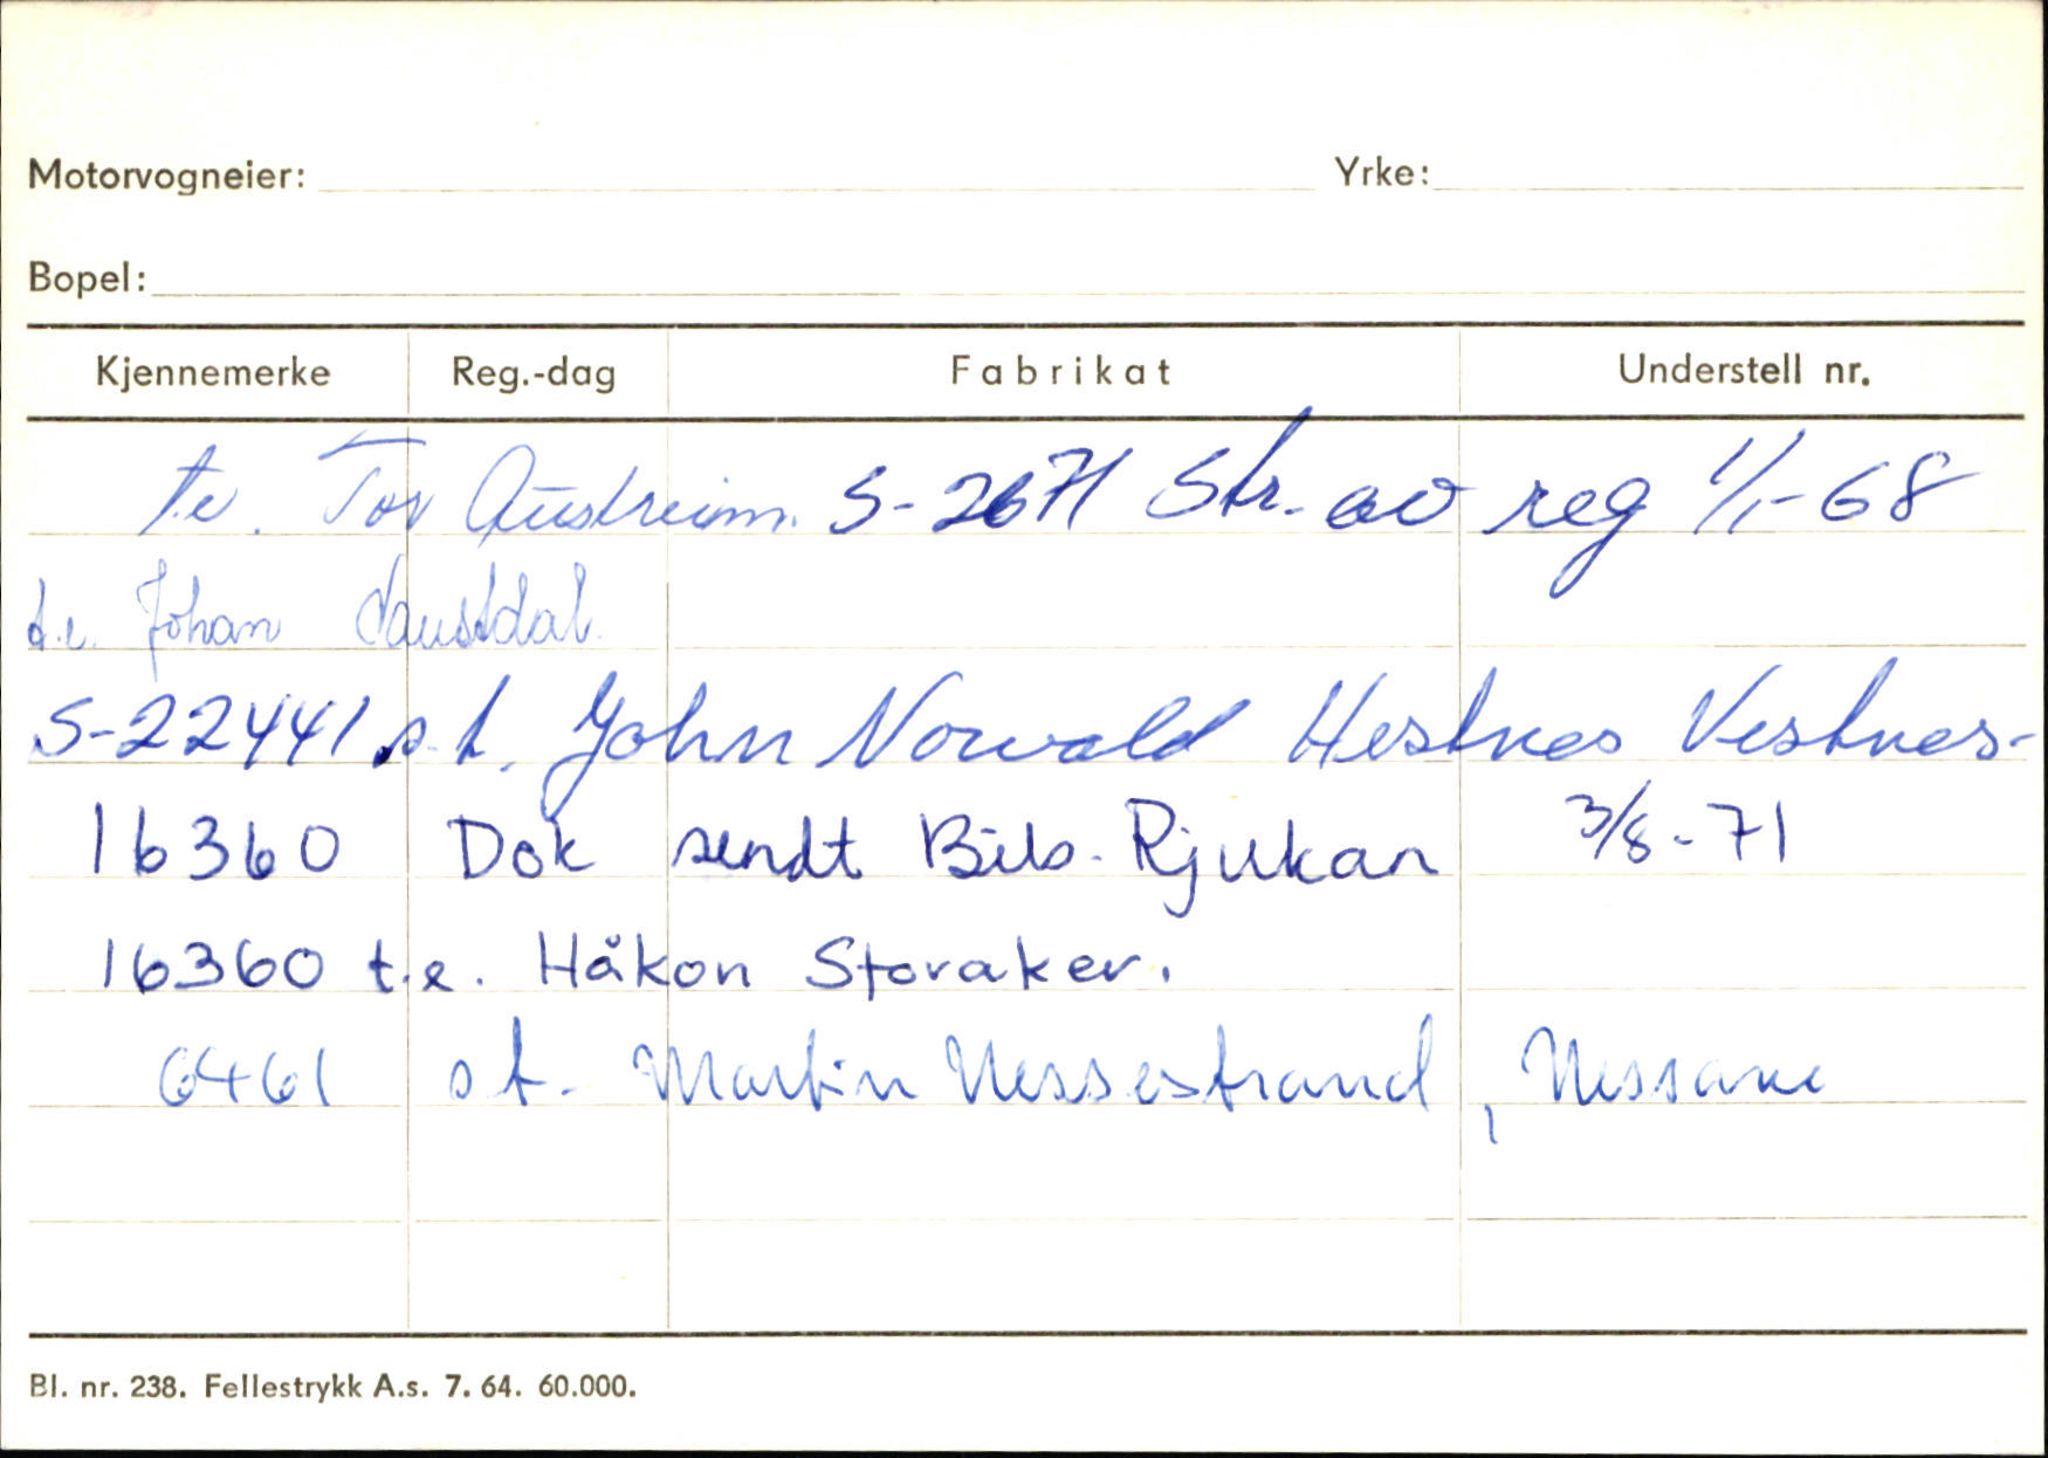 Motorvogneier: Yrke:
Bopel:
Kjennemerke Reg.-dag Fabrikat Understell nr.
t.e. Tor Austreim. S-2671 Str. av reg 1/1-68
t.e. Johan Naustdal.
S-22441 s.t. John Norvald Hestnes Vestnes-
16360 Dok sendt Bils. Rjukan 3/8-71
16360 t.e. Håkon Storaker.
6461 s.t. Martin Nessestrand, Nessane
Bl. nr. 238. Fellestrykk A.s. 7. 64. 60.000.